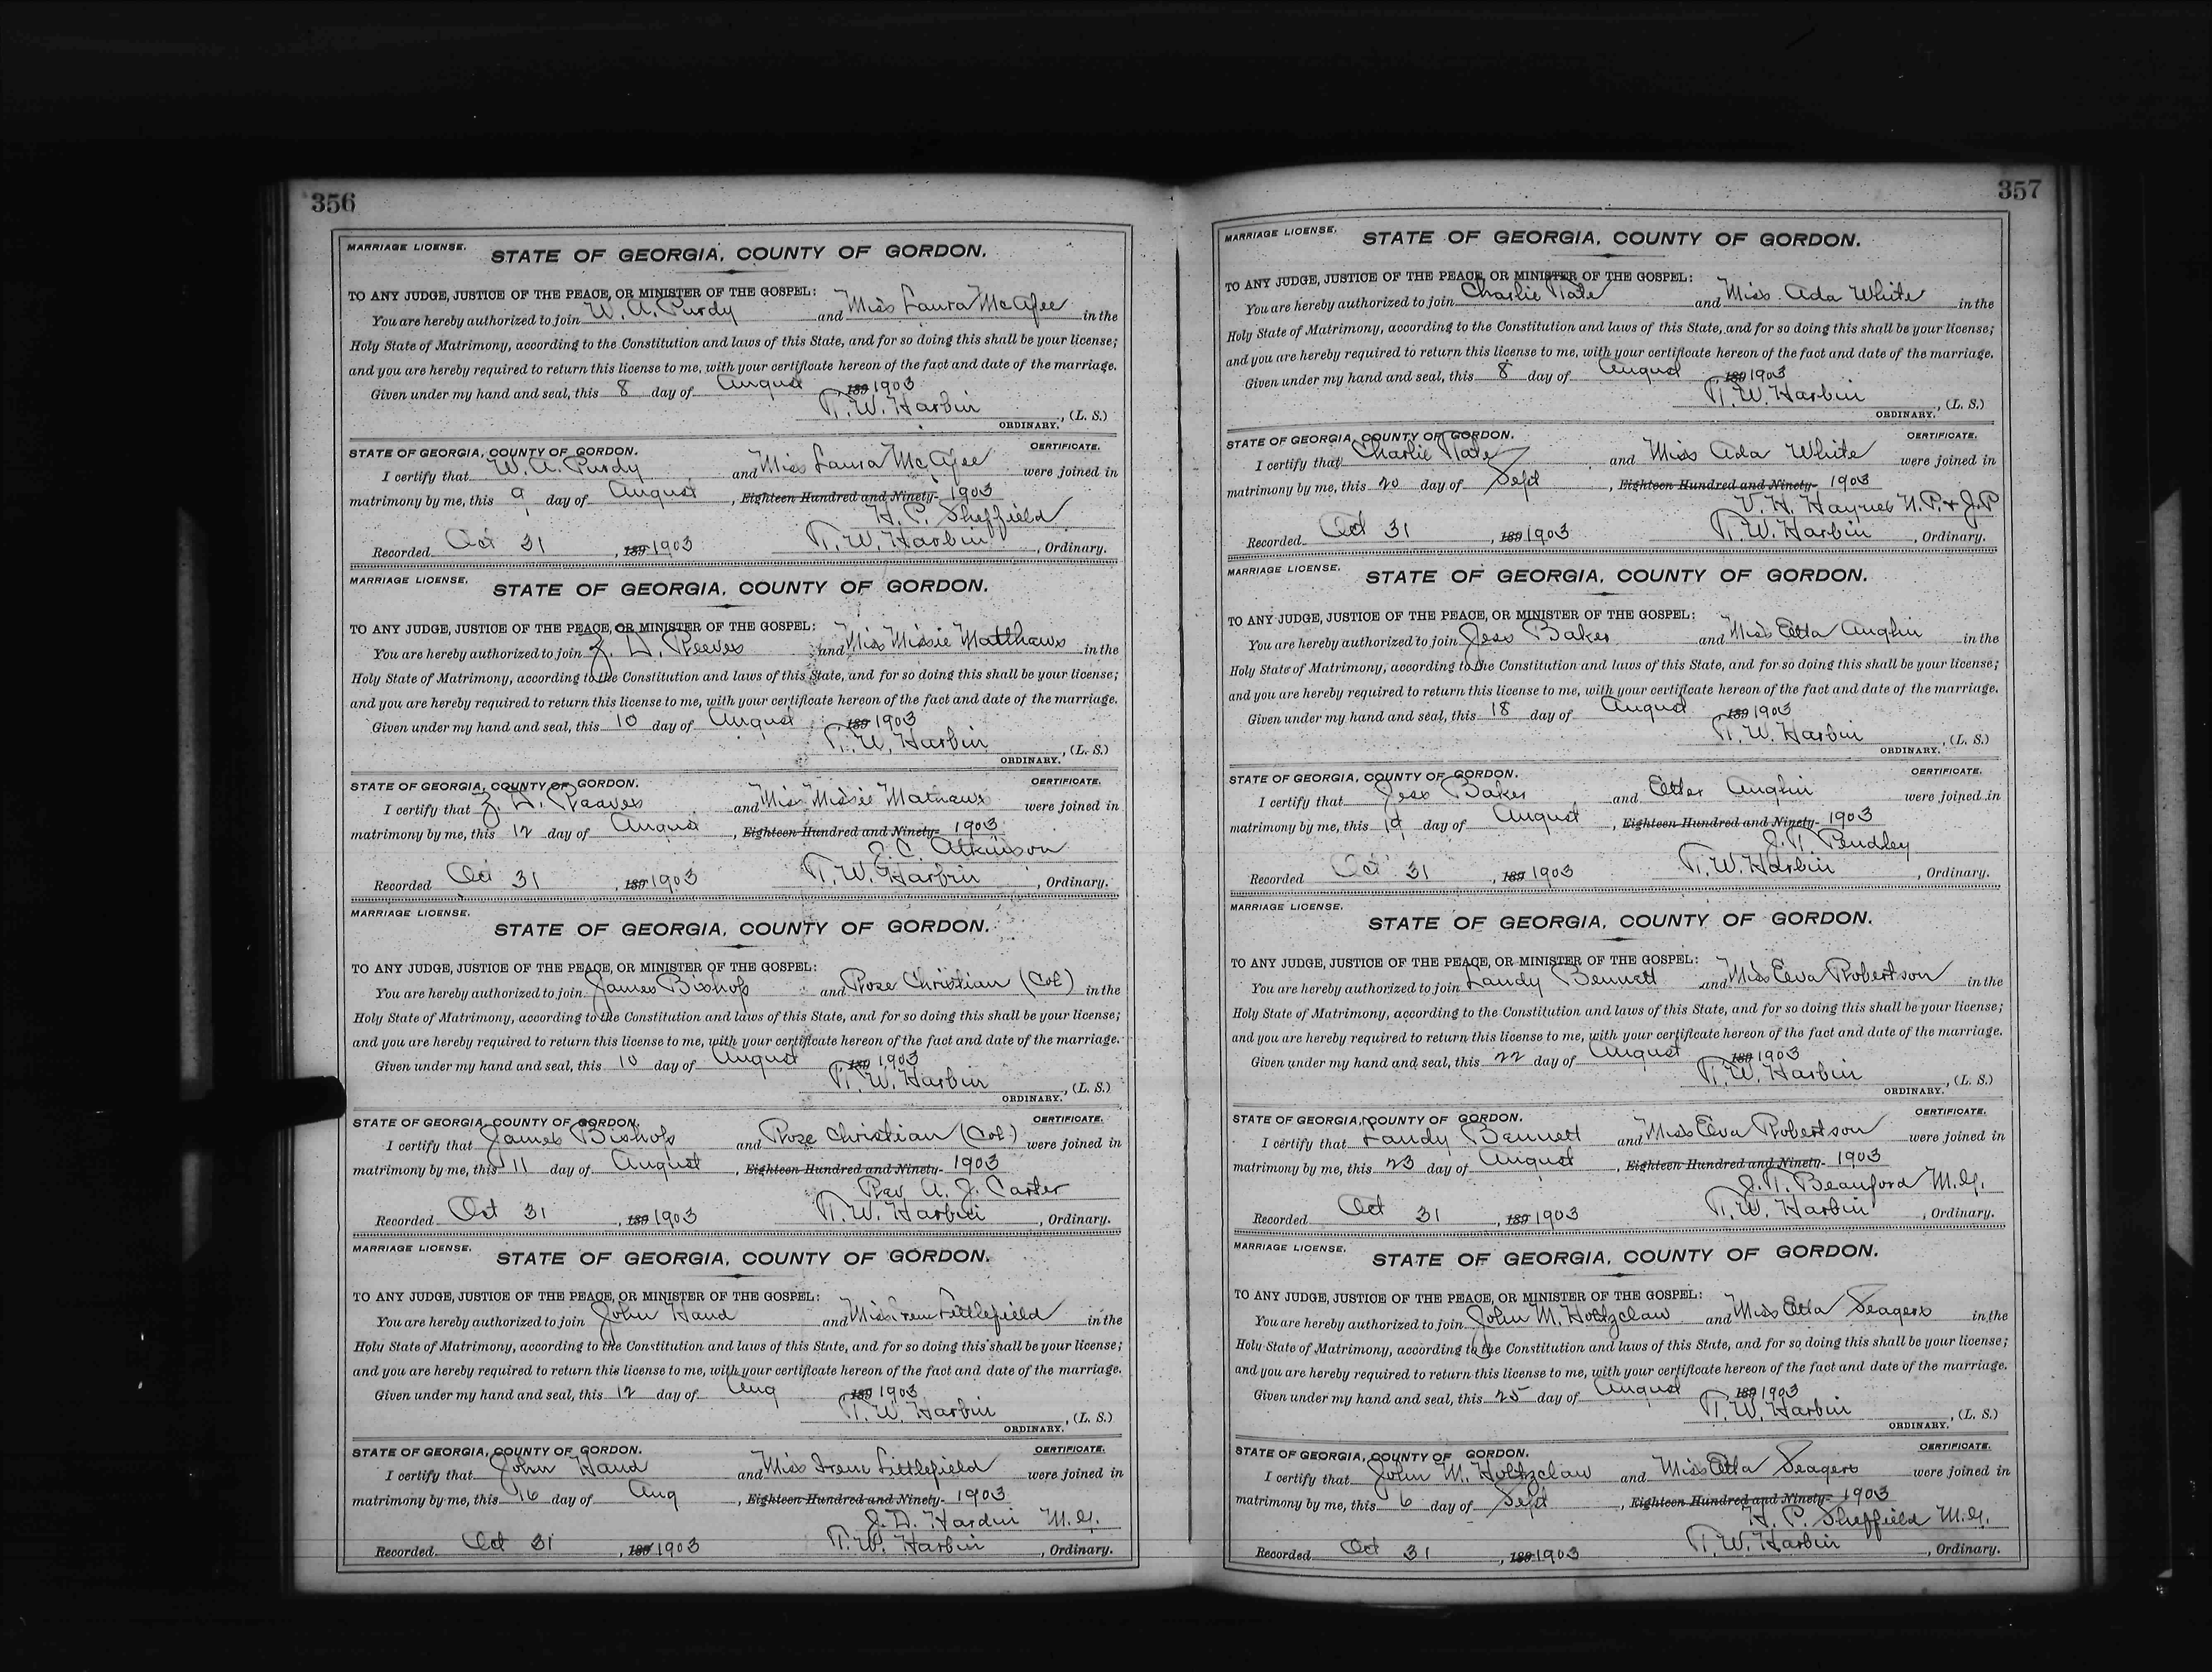 356
MARRIAGE LICENSE.
STATE OF GEORGIA, COUNTY OF GORDON.
TO ANY JUDGE, JUSTICE OF THE PEACE, OR MINISTER OF THE GOSPEL:
You are hereby authorized to join W. A. Purdy and Miss Laura McAfee in the
Holy State of Matrimony, according to the Constitution and laws of this State, and for so doing this shall be your license;
and you are hereby required to return this license to me, with your certificate hereon of the fact and date of the marriage.
Given under my hand and seal, this 8 day of August 189 1903
T. W. Harbin, (L. S.)
ORDINARY.
STATE OF GEORGIA, COUNTY OF GORDON. CERTIFICATE.
I certify that W. A. Purdy and Miss Laura McAfee were joined in
matrimony by me, this 9 day of August, Eighteen Hundred and Ninety- 1903
H. P. Sheffield
Recorded Oct 31, 189 1903 T. W. Harbin, Ordinary.
MARRIAGE LICENSE.
STATE OF GEORGIA, COUNTY OF GORDON.
TO ANY JUDGE, JUSTICE OF THE PEACE, OR MINISTER OF THE GOSPEL:
You are hereby authorized to join Z. D. Reeves and Miss Missie Matthews in the
Holy State of Matrimony, according to the Constitution and laws of this State, and for so doing this shall be your license;
and you are hereby required to return this license to me, with your certificate hereon of the fact and date of the marriage.
Given under my hand and seal, this 10 day of August 189 1903
T. W. Harbin, (L. S.)
ORDINARY.
STATE OF GEORGIA, COUNTY OF GORDON. CERTIFICATE.
I certify that Z. D. Reaves and Miss Missie Mathews were joined in
matrimony by me, this 12 day of August, Eighteen Hundred and Ninety- 1903
J. C. Atkinson
Recorded Oct 31, 189 1903 T. W. Harbin, Ordinary.
MARRIAGE LICENSE.
STATE OF GEORGIA, COUNTY OF GORDON.
TO ANY JUDGE, JUSTICE OF THE PEACE, OR MINISTER OF THE GOSPEL:
You are hereby authorized to join James Bishop and Rose Christian (Col) in the
Holy State of Matrimony, according to the Constitution and laws of this State, and for so doing this shall be your license;
and you are hereby required to return this license to me, with your certificate hereon of the fact and date of the marriage.
Given under my hand and seal, this 10 day of August 189 1903
T. W. Harbin, (L. S.)
ORDINARY.
STATE OF GEORGIA, COUNTY OF GORDON. CERTIFICATE.
I certify that James Bishop and Rose Christian (Col) were joined in
matrimony by me, this 11 day of August, Eighteen Hundred and Ninety- 1903
Rev A. J. Carter
Recorded Oct 31, 189 1903 T. W. Harbin, Ordinary.
MARRIAGE LICENSE.
STATE OF GEORGIA, COUNTY OF GORDON.
TO ANY JUDGE, JUSTICE OF THE PEACE, OR MINISTER OF THE GOSPEL:
You are hereby authorized to join John Hand and Miss Irene Littlefield in the
Holy State of Matrimony, according to the Constitution and laws of this State, and for so doing this shall be your license;
and you are hereby required to return this license to me, with your certificate hereon of the fact and date of the marriage.
Given under my hand and seal, this 12 day of Aug 189 1903
T. W. Harbin, (L. S.)
ORDINARY.
STATE OF GEORGIA, COUNTY OF GORDON. CERTIFICATE.
I certify that John Hand and Miss Irene Littlefield were joined in
matrimony by me, this 16 day of Aug, Eighteen Hundred and Ninety- 1903
J. D. Hardin M.G.
Recorded Oct 31, 189 1903 T. W. Harbin, Ordinary.
357
MARRIAGE LICENSE.
STATE OF GEORGIA, COUNTY OF GORDON.
TO ANY JUDGE, JUSTICE OF THE PEACE, OR MINISTER OF THE GOSPEL:
You are hereby authorized to join Charlie Tate and Miss Ada White in the
Holy State of Matrimony, according to the Constitution and laws of this State, and for so doing this shall be your license;
and you are hereby required to return this license to me, with your certificate hereon of the fact and date of the marriage.
Given under my hand and seal, this 8 day of August, 189 1903
T. W. Harbin, (L. S.)
ORDINARY.
STATE OF GEORGIA, COUNTY OF GORDON. CERTIFICATE.
I certify that Charlie Tate and Miss Ada White were joined in
matrimony by me, this 20 day of Sept, Eighteen Hundred and Ninety- 1903
V. H. Haynes N.P. & J.P
Recorded Oct 31, 189 1903 T. W. Harbin, Ordinary.
MARRIAGE LICENSE.
STATE OF GEORGIA, COUNTY OF GORDON.
TO ANY JUDGE, JUSTICE OF THE PEACE, OR MINISTER OF THE GOSPEL:
You are hereby authorized to join Jess Baker and Miss Etta Anglin in the
Holy State of Matrimony, according to the Constitution and laws of this State, and for so doing this shall be your license;
and you are hereby required to return this license to me, with your certificate hereon of the fact and date of the marriage.
Given under my hand and seal, this 18 day of August 189 1903
T. W. Harbin, (L. S.)
ORDINARY.
STATE OF GEORGIA, COUNTY OF GORDON. CERTIFICATE.
I certify that Jess Baker and Etter Anglin were joined in
matrimony by me, this 19 day of August, Eighteen Hundred and Ninety- 1903
J. T. Pendley
Recorded Oct 31, 189 1903 T. W. Harbin, Ordinary.
MARRIAGE LICENSE.
STATE OF GEORGIA, COUNTY OF GORDON.
TO ANY JUDGE, JUSTICE OF THE PEACE, OR MINISTER OF THE GOSPEL:
You are hereby authorized to join Landy Bennett and Miss Eva Robertson in the
Holy State of Matrimony, according to the Constitution and laws of this State, and for so doing this shall be your license;
and you are hereby required to return this license to me, with your certificate hereon of the fact and date of the marriage.
Given under my hand and seal, this 22 day of August 189 1903
T. W. Harbin, (L. S.)
ORDINARY.
STATE OF GEORGIA, COUNTY OF GORDON. CERTIFICATE.
I certify that Landy Bennett and Miss Eva Robertson were joined in
matrimony by me, this 23 day of August, Eighteen Hundred and Ninety- 1903
J. T. Beauford M.G.
Recorded Oct 31, 189 1903 T. W. Harbin, Ordinary.
MARRIAGE LICENSE.
STATE OF GEORGIA, COUNTY OF GORDON.
TO ANY JUDGE, JUSTICE OF THE PEACE, OR MINISTER OF THE GOSPEL:
You are hereby authorized to join John M. Holtzclaw and Miss Etta Seagers in the
Holy State of Matrimony, according to the Constitution and laws of this State, and for so doing this shall be your license;
and you are hereby required to return this license to me, with your certificate hereon of the fact and date of the marriage.
Given under my hand and seal, this 25 day of August 189 1903
T. W. Harbin, (L. S.)
ORDINARY.
STATE OF GEORGIA, COUNTY OF GORDON. CERTIFICATE.
I certify that John M. Holtzclaw and Miss Etta Seagers were joined in
matrimony by me, this 6 day of Sept, Eighteen Hundred and Ninety- 1903
H. P. Sheffield M.G.
Recorded Oct 31, 189 1903 T. W. Harbin, Ordinary.